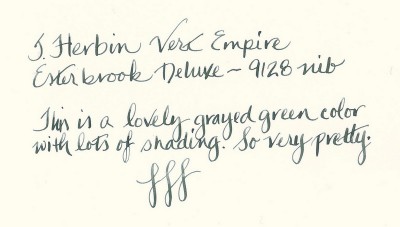 J. Herbin Vert Empire
Esterbrook Deluxe ~ 9128 nib
This is a lovely grayed green color
with lots of shading. So very pretty.
fff